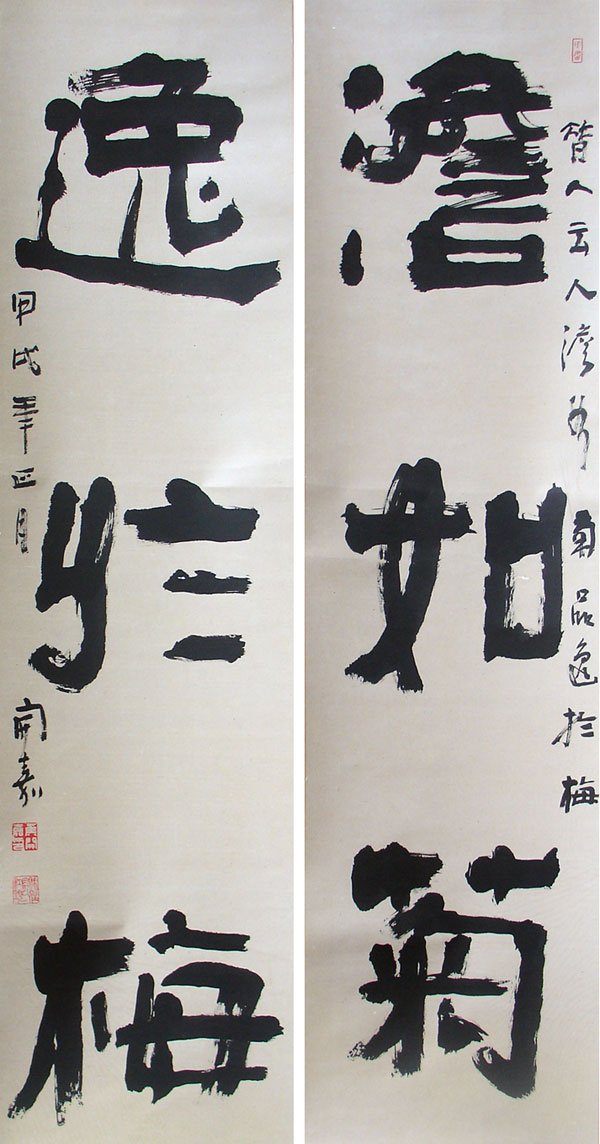 昔人云人澹若菊品逸於梅
澹如菊
逸於梅
甲戌年正月
開嘉